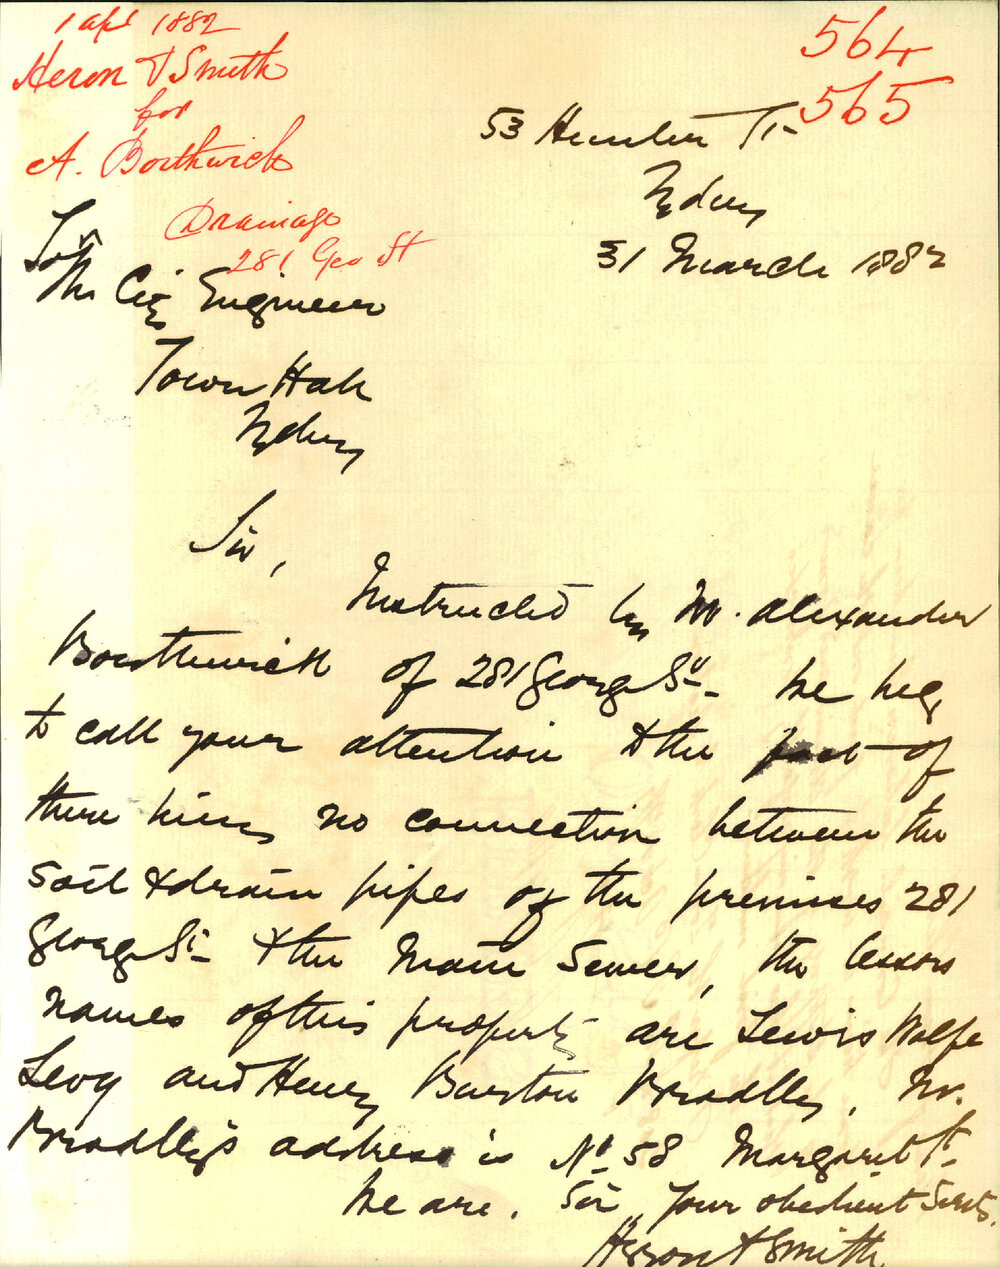 1 apl 1882
Heron & Smith
for
A. Borthwick
Drainage
281 Geo St
564
565
53 Hunter St
Sydney
31 March 1882
To
The City Engineer
Town Hall
Sydney
Sir,
Instructed by Mr. Alexander
Borthwick of 281 George St. we beg
to call your attention to the fact of
there being no connection between the
soil & drain pipes of the premises 281
George St & the Main Sewer, the lessors
names of this property are Lewis Wolfe
Levy and Henry Burton Bradley, Mr.
Bradley's address is No 58 Margaret St.
We are, Sir, Your obedient Servts.
Heron & Smith